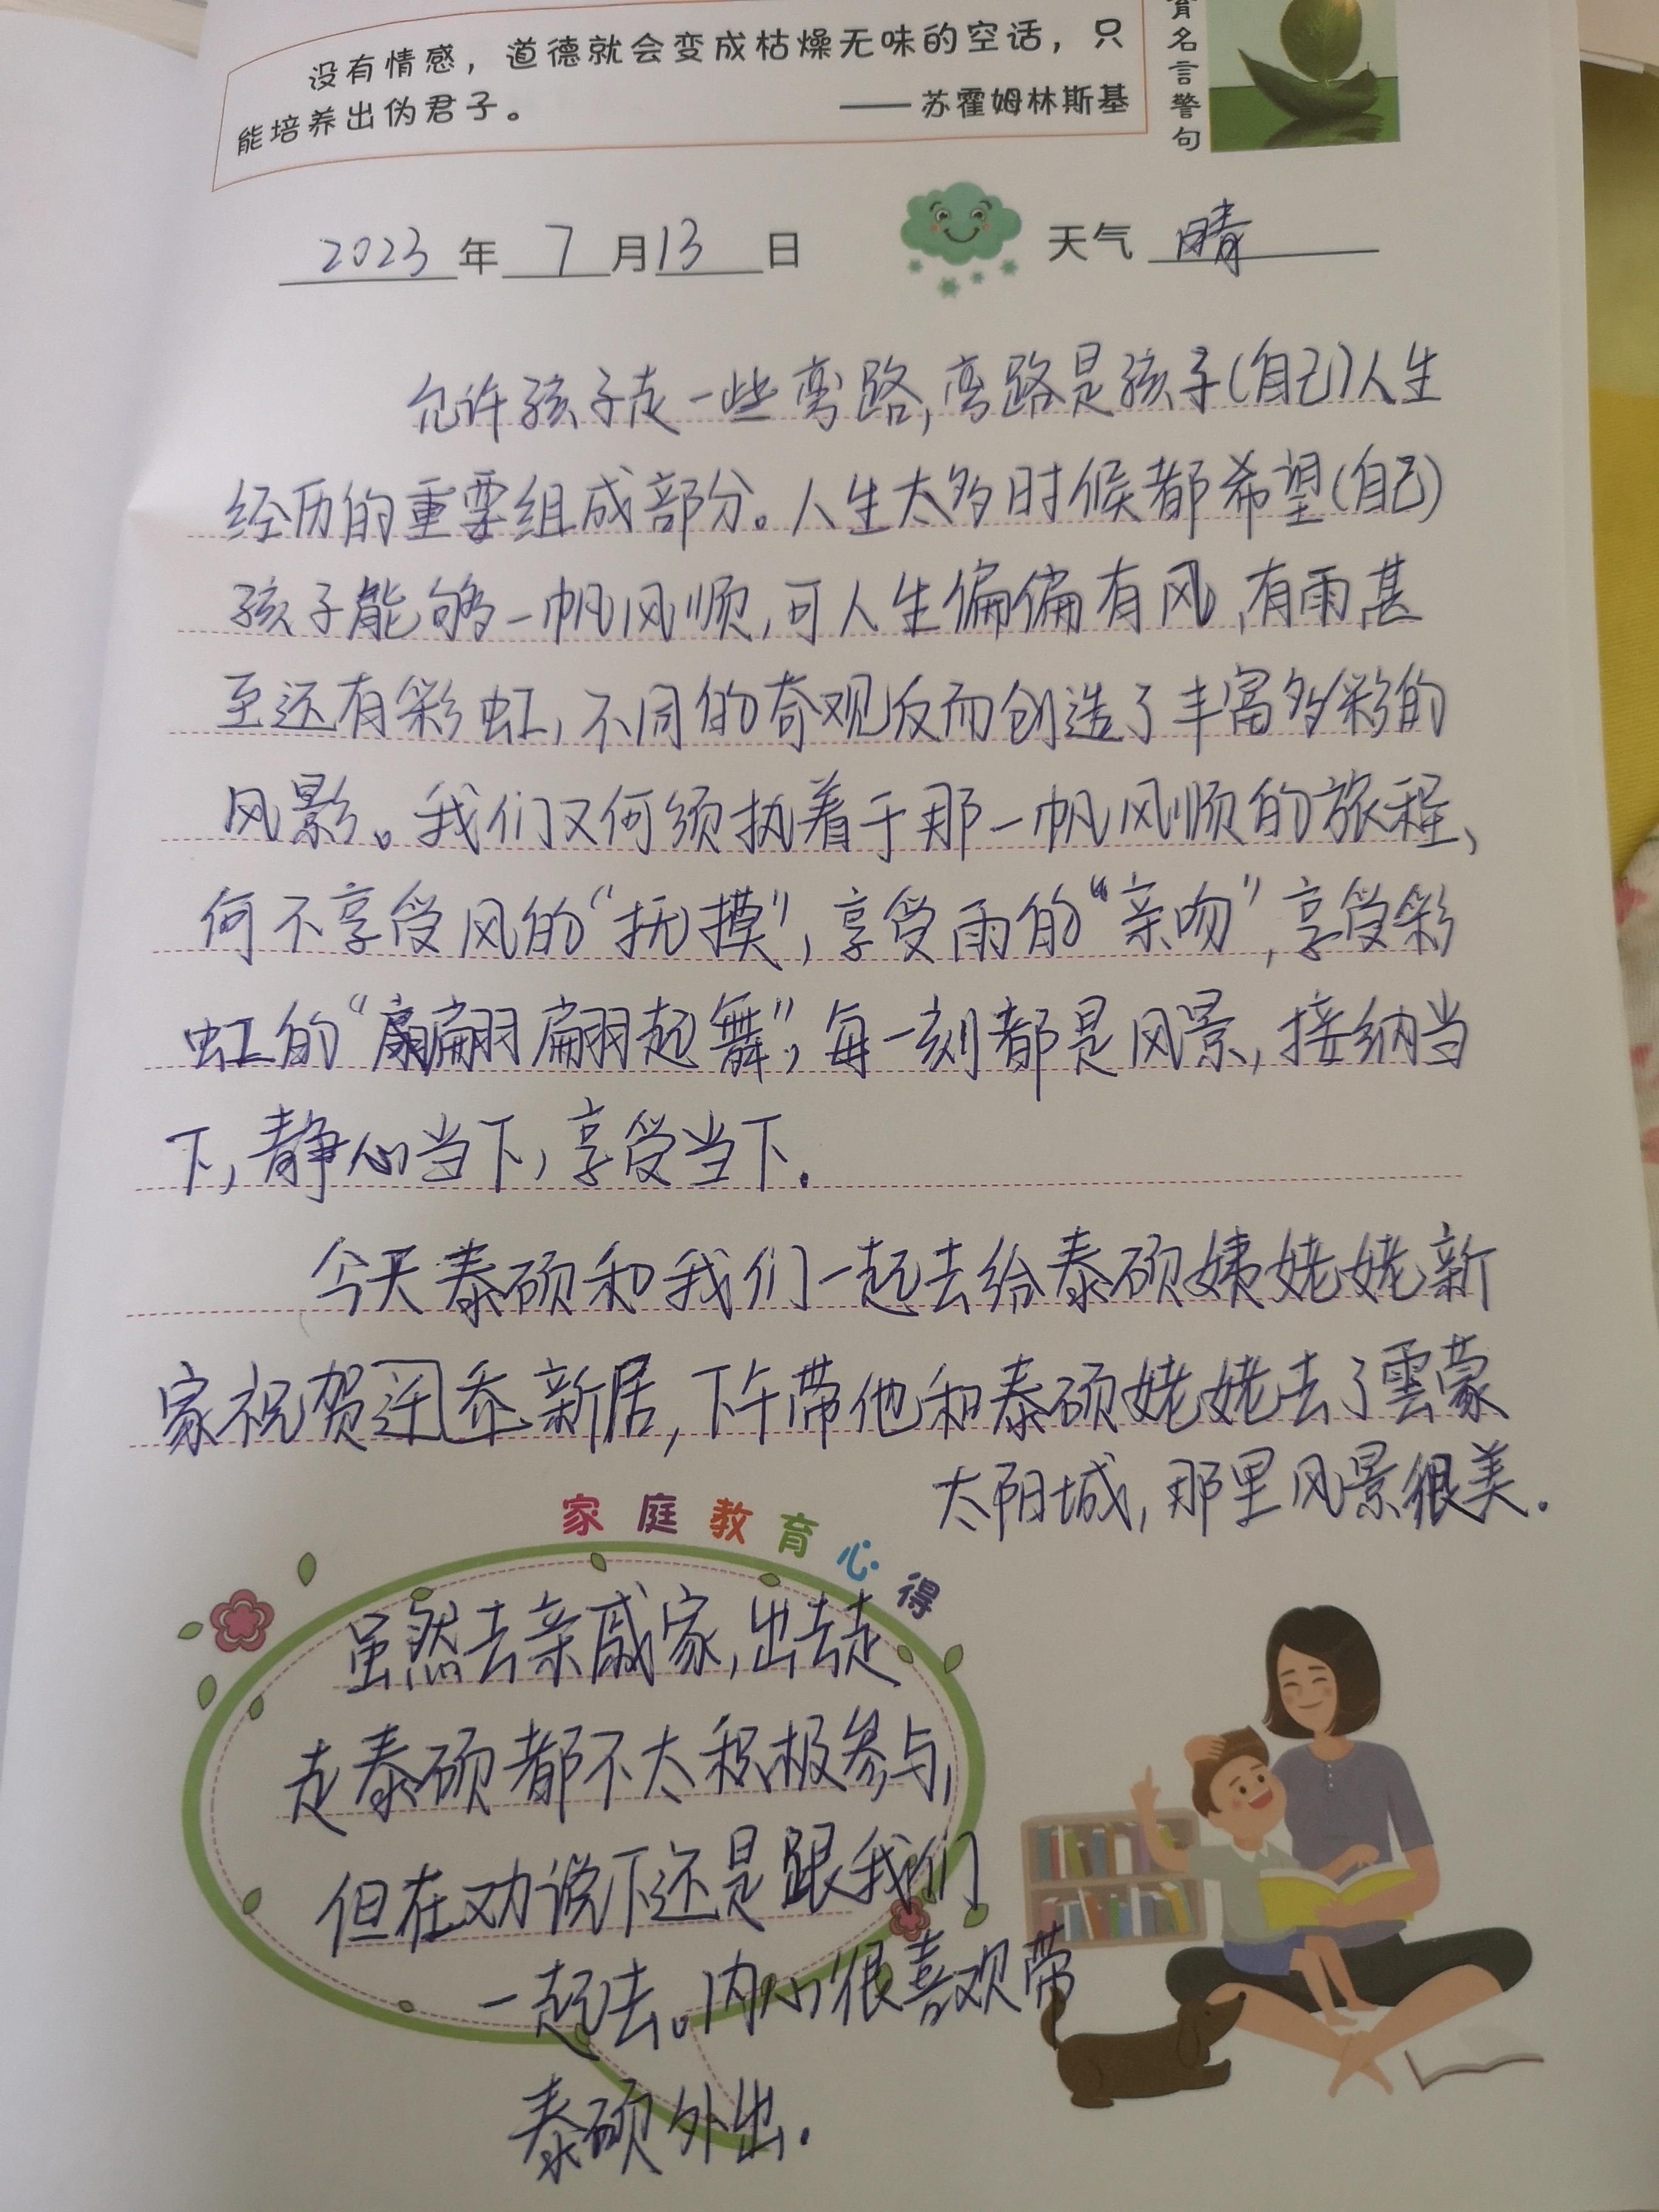 没有情感，道德就会变成枯燥无味的空话，只
能培养出伪君子。 ——苏霍姆林斯基
育名言警句
2023年7月13日 天气 晴
允许孩子走一些弯路,弯路是孩子(自己)人生
经历的重要组成部分。人生太多时候都希望(自己)
孩子能够一帆风顺,可人生偏偏有风、有雨,甚
至还有彩虹,不同的奇观反而创造了丰富多彩的
风影。我们又何须执着于那一帆风顺的旅程、
何不享受风的“抚摸”,享受雨的“亲吻”,享受彩
虹的“翩翩起舞”,每一刻都是风景,接纳当
下,静心当下,享受当下.
今天泰硕和我们一起去给泰硕姨姥姥新
家祝贺迁乔新居,下午带他和泰硕姥姥去了雲蒙
太阳城,那里风景很美.
家庭教育心得
虽然去亲戚家,出去走
走泰硕都不太积极参与,
但在劝说下还是跟我们
一起去。内心很喜欢带
泰硕外出.